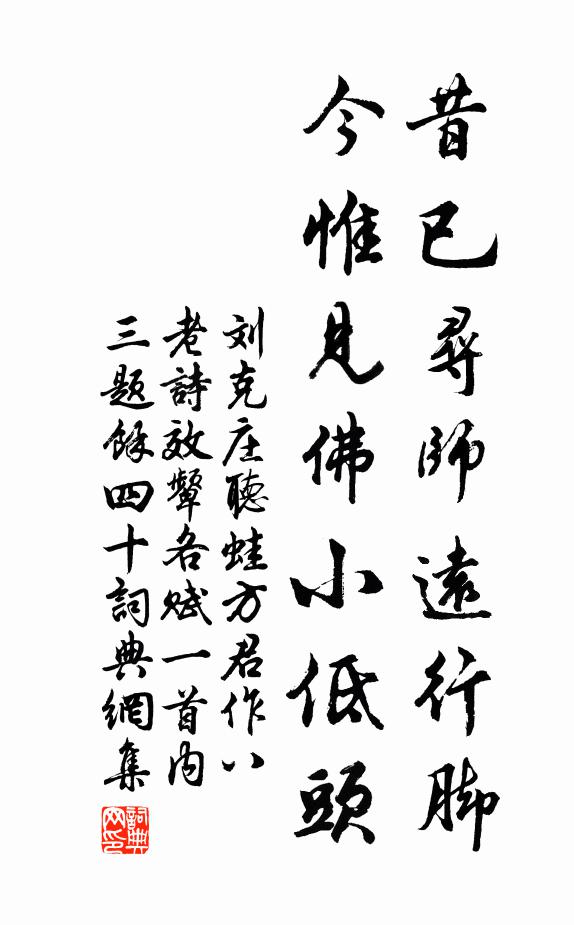 昔已尋師遠行脚
今惟見佛小低頭
刘克庄聽蛙方君作八
老詩效顰各赋一首内
三题餘四十詞典網集
詞典网印